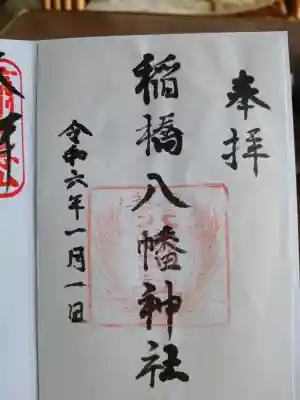 奉拝
稲橋八幡神社
令和六年一月一日
奉拝